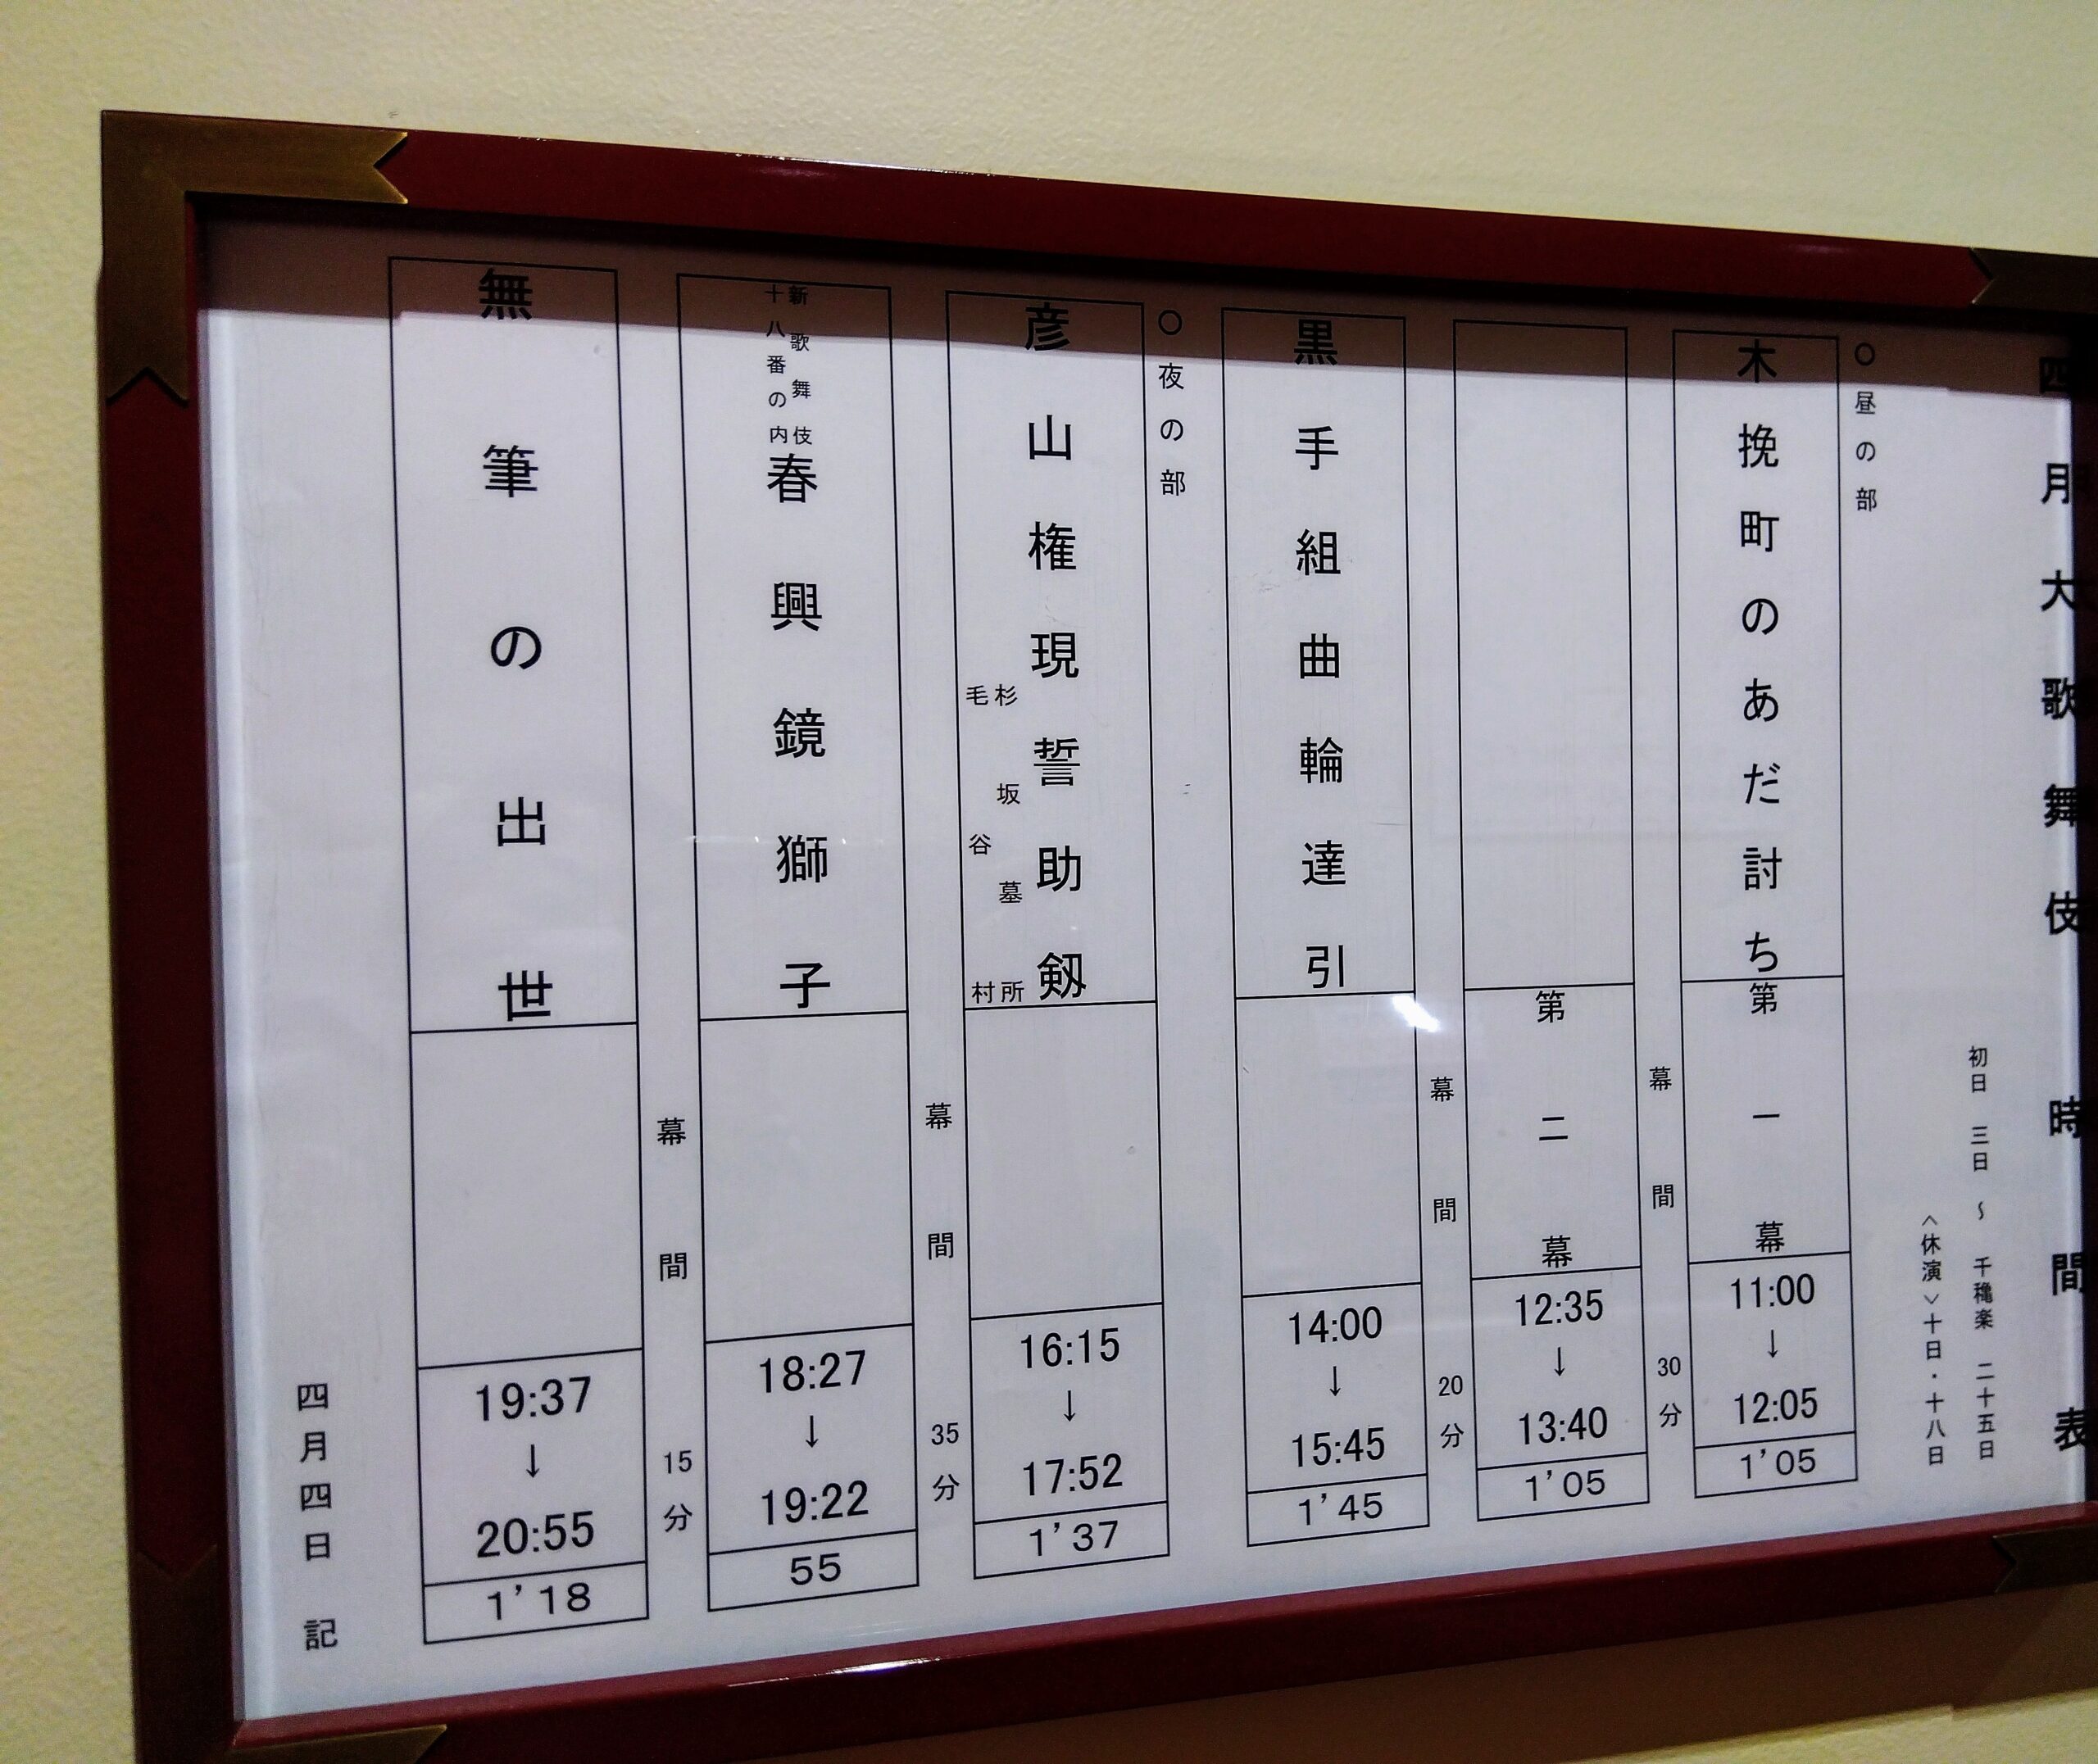 四月大歌舞伎 時間表
初日 三日 ～ 千穐楽 二十五日
＜休演＞十日・十八日
○昼の部
木挽町のあだ討ち
第一幕
11:00
↓
12:05
1’05
幕間
30分
第二幕
12:35
↓
13:40
1’05
幕間
20分
黒手組曲輪達引
14:00
↓
15:45
1’45
○夜の部
彦山権現誓助剱
杉坂墓所
毛谷村
16:15
↓
17:52
1’37
幕間
35分
新歌舞伎
十八番の内
春興鏡獅子
18:27
↓
19:22
55
幕間
15分
無筆の出世
19:37
↓
20:55
1’18
四月四日 記